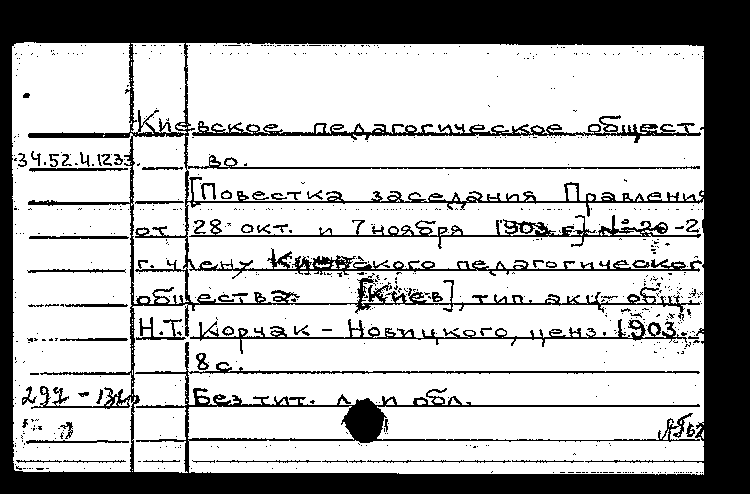 Киевское педагогическое общест-
34.52.4.1233. во.
[Повестка заседания Правления
от 28 окт. и 7 ноября 1903 г.] № 20-21
г. члену Киевского педагогического
общества. [Киев], тип. акц. общ.
Н.Т. Корчак-Новицкого, ценз. 1903.
8 с.
Без тит. л. и обл.